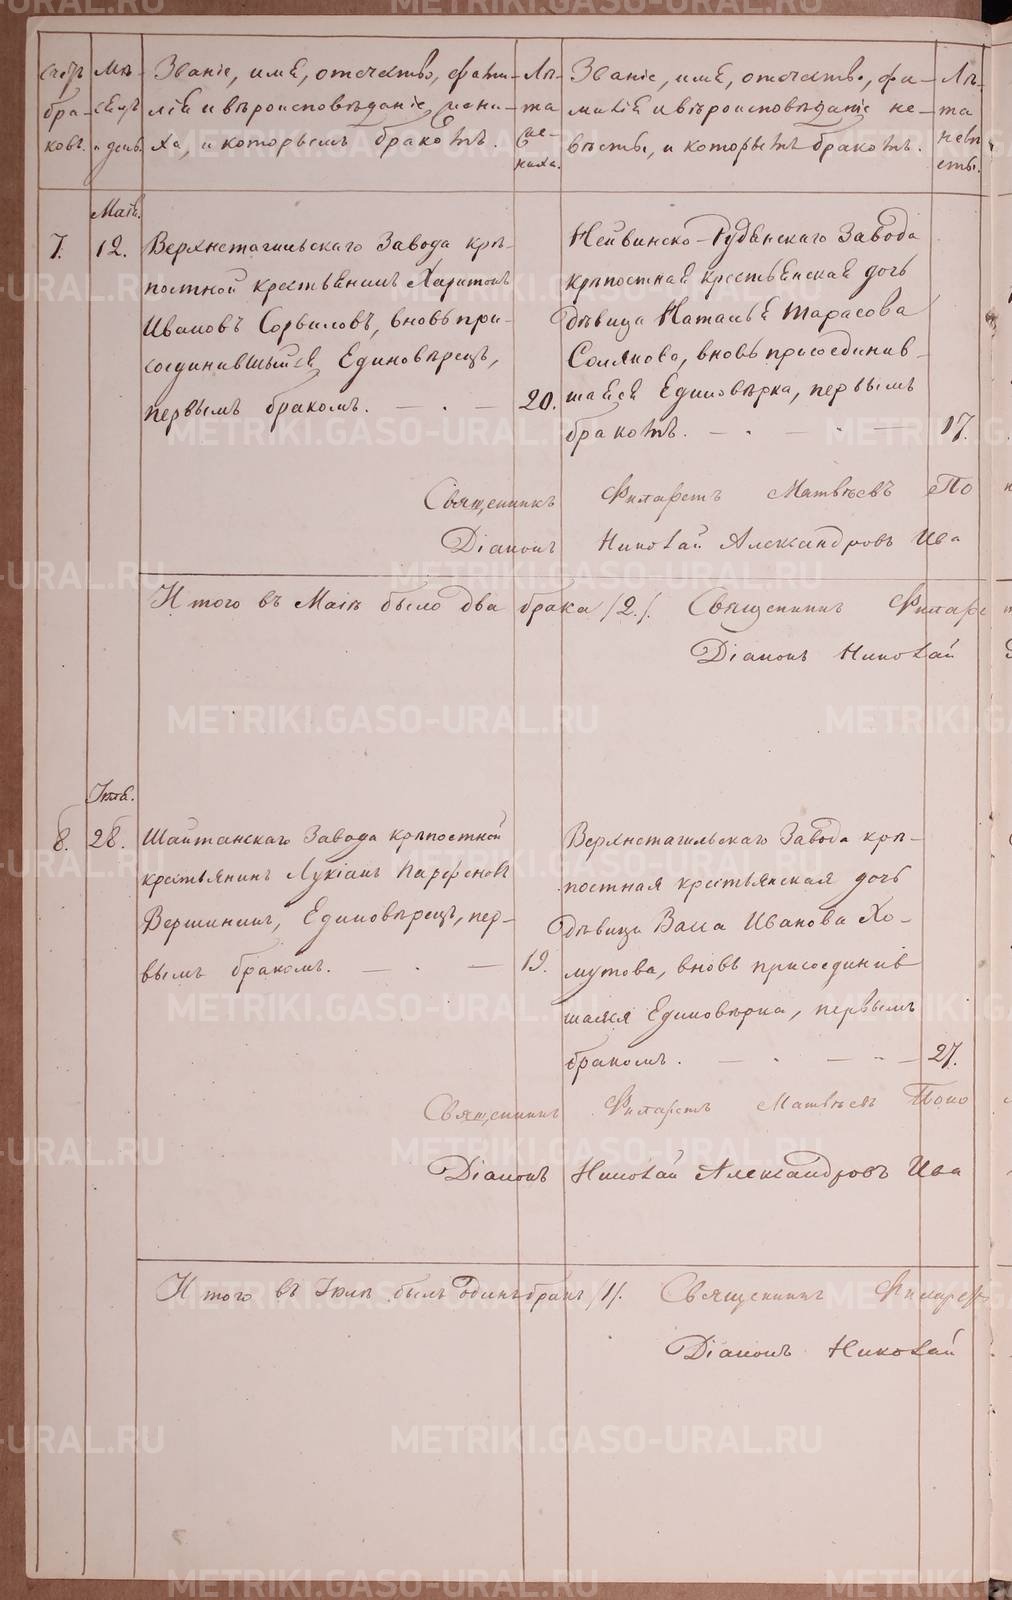 Счетъ бра-ковъ.
Мѣ-сяцъ и день.
Званіе, имя, отечество, фами-
лія и вѣроисповѣданіе жени-
ха, и которымъ бракомъ.
Лѣ-та же-ниха.
Званіе, имя, отечество, фа-
милія и вѣроисповѣданіе не-
вѣсты, и которымъ бракомъ.
Лѣ-та невѣ-сты.
Май.
7.
12.
Верхнетагильскаго Завода крѣ-
постной крестьянинъ Харитонъ
Ивановъ Сорвиловъ, вновь при-
соединившыйся Единовѣрецъ,
первымъ бракомъ. — . —
20.
Нейвинско-Рудянскаго Завода
крѣпостная крестьянская дочь
дѣвица Наталья Тарасова
Солякова, вновь присоединив-
шаяся Единовѣрка, первымъ
бракомъ. — . — . —
17.
Священникъ Филаретъ Матвѣевъ По
Діаконъ Николай Александровъ Ива
Итого въ Маѣ было два брака /2/. Священникъ Филаре
Діаконъ Николай
Іюль.
8.
28.
Шайтанскаго Завода крѣпостной
крестьянинъ Лукіанъ Парфеновъ
Вершининъ, Единовѣрецъ, пер-
вымъ бракомъ. — . —
19.
Верхнетагильскаго Завода крѣ-
постная крестьянская дочь
дѣвица Васса Иванова Хо-
мутова, вновь присоединив
шаяся Единовѣрка, первымъ
бракомъ. — . — . —
27.
Священникъ Филаретъ Матвѣевъ Поно
Діаконъ Николай Александровъ Ива
Итого въ Іюлѣ былъ одинъ бракъ /1/. Священникъ Филарет
Діаконъ Николай
METRIKI.GASO-URAL.RU